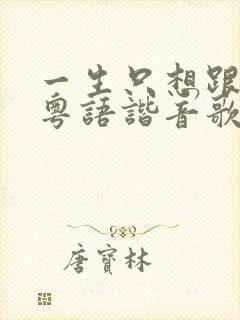 一生只想跟
粤語諧音歌
唐寶林